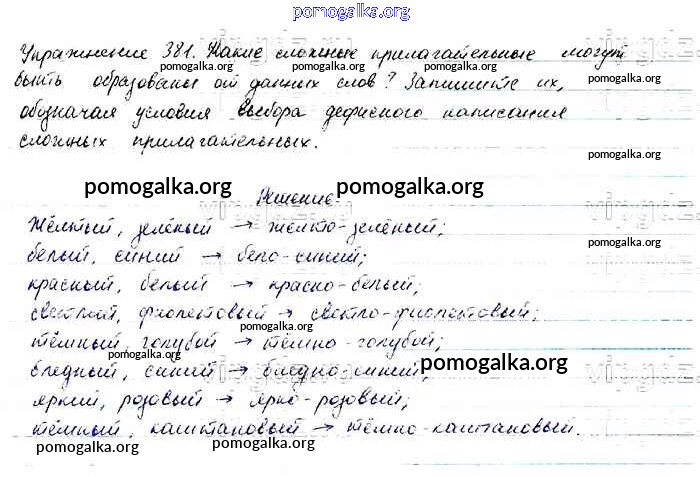 pomogalka.org
Упражнение 381. Какие сложные прилагательные могут
быть образованы от данных слов? Запишите их,
обозначая условия выбора дефисного написания
сложных прилагательных.
pomogalka.org
pomogalka.org
pomogalka.org
pomogalka.org
pomogalka.org
pomogalka.org
pomogalka.org
pomogalka.org
Решение.
Жёлтый, зелёный → жёлто-зелёный;
белый, синий → бело-синий;
pomogalka.org
красный, белый → красно-белый;
светлый, фиолетовый → светло-фиолетовый;
pomogalka.org
тёмный, голубой → тёмно-голубой;
pomogalka.org
pomogalka.org
бледный, синий → бледно-синий;
яркий, розовый → ярко-розовый;
тёмный, каштановый → тёмно-каштановый.
pomogalka.org
pomogalka.org